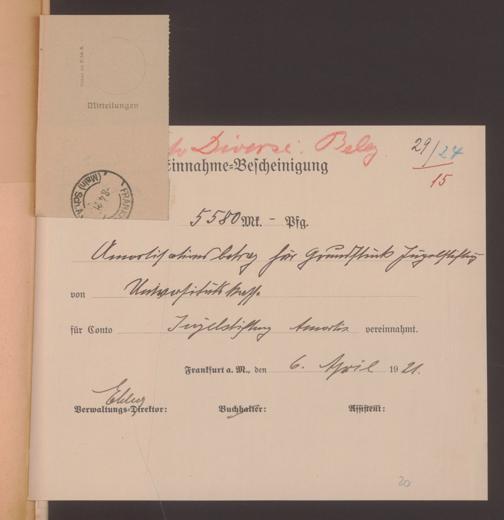 Mitteilungen
Diverse. Beleg 29/24
15
Einnahme-Bescheinigung
5580 Mk. - Pfg.
Amortisationsbetrag für Grundstück Jügelstiftung
von Universitätskasse
für Conto Jügelstiftung Amortis vereinnahmt.
Frankfurt a. M., den 6. April 1921.
Verwaltungs-Direktor: Buchhalter: Assistent:
20